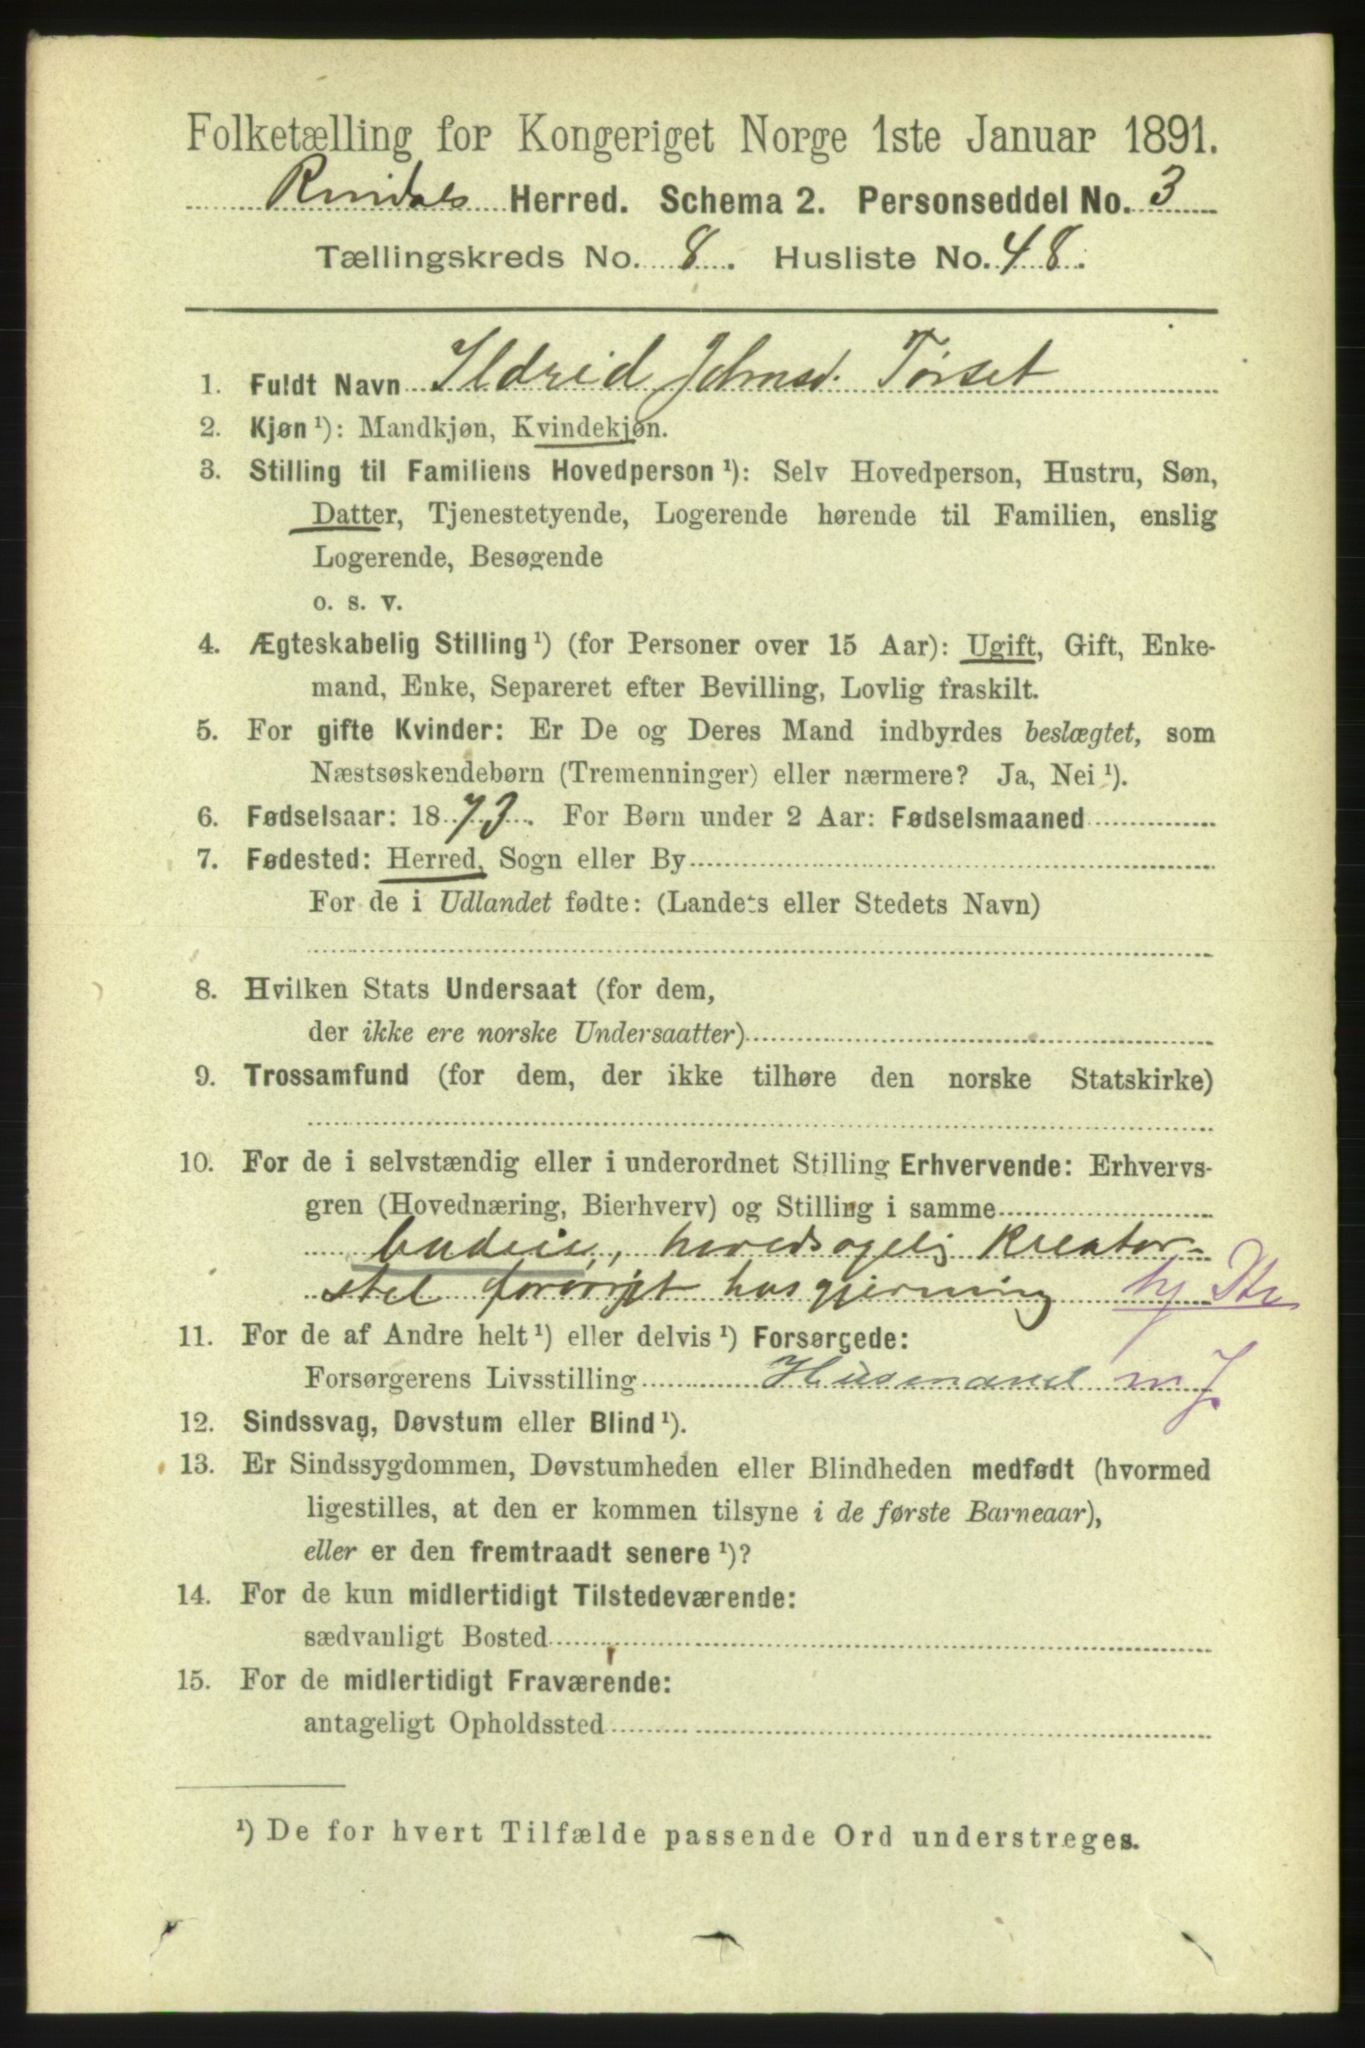 Folketælling for Kongeriget Norge 1ste Januar 1891.
Rindals Herred. Schema 2. Personseddel No. 3
Tællingskreds No. 8. Husliste No. 48.
1. Fuldt Navn Ildrid Johnsd. Tørset
2. Kjøn ¹): Mandkjøn, Kvindekjøn.
3. Stilling til Familiens Hovedperson ¹): Selv Hovedperson, Hustru, Søn,
Datter, Tjenestetyende, Logerende hørende til Familien, enslig
Logerende, Besøgende
o. s. v.
4. Ægteskabelig Stilling ¹) (for Personer over 15 Aar): Ugift, Gift, Enke-
mand, Enke, Separeret efter Bevilling, Lovlig fraskilt.
5. For gifte Kvinder: Er De og Deres Mand indbyrdes beslægtet, som
Næstsøskendebørn (Tremenninger) eller nærmere? Ja, Nei ¹).
6. Fødselsaar: 1873. For Børn under 2 Aar: Fødselsmaaned
7. Fødested: Herred, Sogn eller By
For de i Udlandet fødte: (Landets eller Stedets Navn)
8. Hvilken Stats Undersaat (for dem,
der ikke ere norske Undersaatter)
9. Trossamfund (for dem, der ikke tilhøre den norske Statskirke)
10. For de i selvstændig eller i underordnet Stilling Erhvervende: Erhvervs-
gren (Hovednæring, Bierhverv) og Stilling i samme
budeie, hovedsagelig kreatur-
stel forøvrigt husgjerning
11. For de af Andre helt ¹) eller delvis ¹) Forsørgede:
Forsørgerens Livsstilling Husmand m J.
12. Sindssvag, Døvstum eller Blind ¹).
13. Er Sindssygdommen, Døvstumheden eller Blindheden medfødt (hvormed
ligestilles, at den er kommen tilsyne i de første Barneaar),
eller er den fremtraadt senere ¹)?
14. For de kun midlertidigt Tilstedeværende:
sædvanligt Bosted
15. For de midlertidigt Fraværende:
antageligt Opholdssted
¹) De for hvert Tilfælde passende Ord understreges.